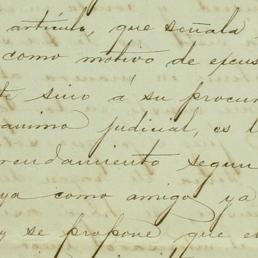 artículo, que señala
como motivo de ejecu
te sino á su procur
ánimo judicial, es l
rendamiento segun
ya como amigo ya
y se propone que e